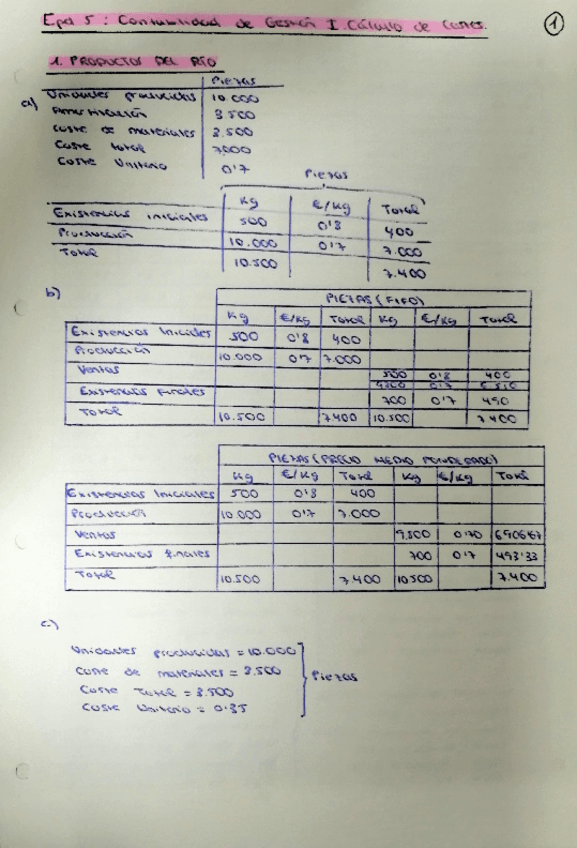 Epd 5: Contabilidad de Gestión I. Cálculo de Costes. 1
1. PRODUCTOS DEL RÍO
a)
Piezas
Unidades producidas 10.000
Amortización 3.500
Coste de materiales 3.500
Coste total 7.000
Coste Unitario 0'7
Piezas
Kg €/Kg Total
Existencias iniciales 500 0'8 400
Producción 10.000 0'7 7.000
Total 10.500 7.400
b)
PIEZAS (FIFO)
Kg €/Kg Total Kg €/Kg Total
Existencias Iniciales 500 0'8 400
Producción 10.000 0'7 7.000
Ventas 500 0'8 400
0'7
Existencias Finales 700 0'7 490
Total 10.500 7.400 10.500 7.400
PIEZAS (PRECIO MEDIO PONDERADO)
Kg €/Kg Total Kg €/Kg Total
Existencias Iniciales 500 0'8 400
Producción 10.000 0'7 7.000
Ventas 9.800 0'70 6906'67
Existencias finales 700 0'7 493'33
Total 10.500 7.400 10.500 7.400
c)
Unidades producidas = 10.000
Coste de materiales = 3.500
Piezas
Coste Total = 3.500
Coste Unitario = 0'35